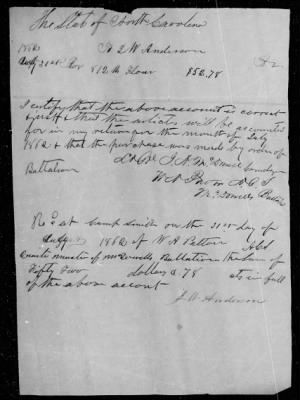 The State of North Carolina
1862 To L W Anderson Dr
Augt 31st For 812 th Flour $52.78
I certify that the above account is correct
& just & that the articles will be accounted
for in my return for the month of July
1862 & that the purchase was made by order of
Lt Col
Battalion
W A
Battn
Recd at Camp Smith on the 31st day of
August 1862 of W A Patton
quarter master of McDowells Battalion the sum of
Fifty two dollars & 78 cts in full
of the above account
L W Anderson